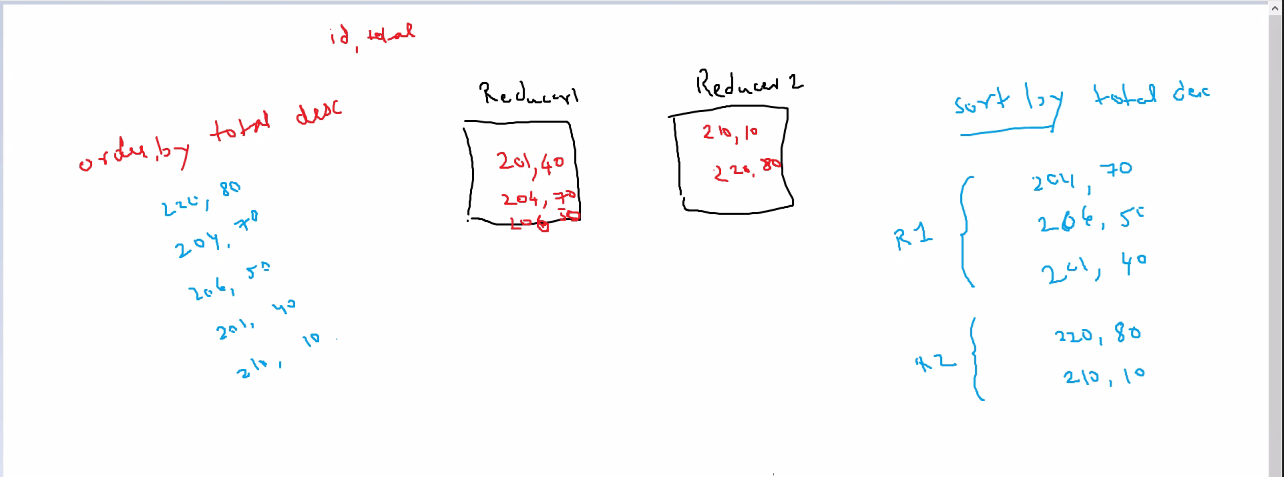 id, total
order by total desc
220, 80
204, 70
206, 50
201, 40
210, 10
Reducer1
201, 40
204, 70
206 50
Reducer 2
210, 10
220, 80
sort by total desc
R1
204, 70
206, 50
201, 40
R2
220, 80
210, 10